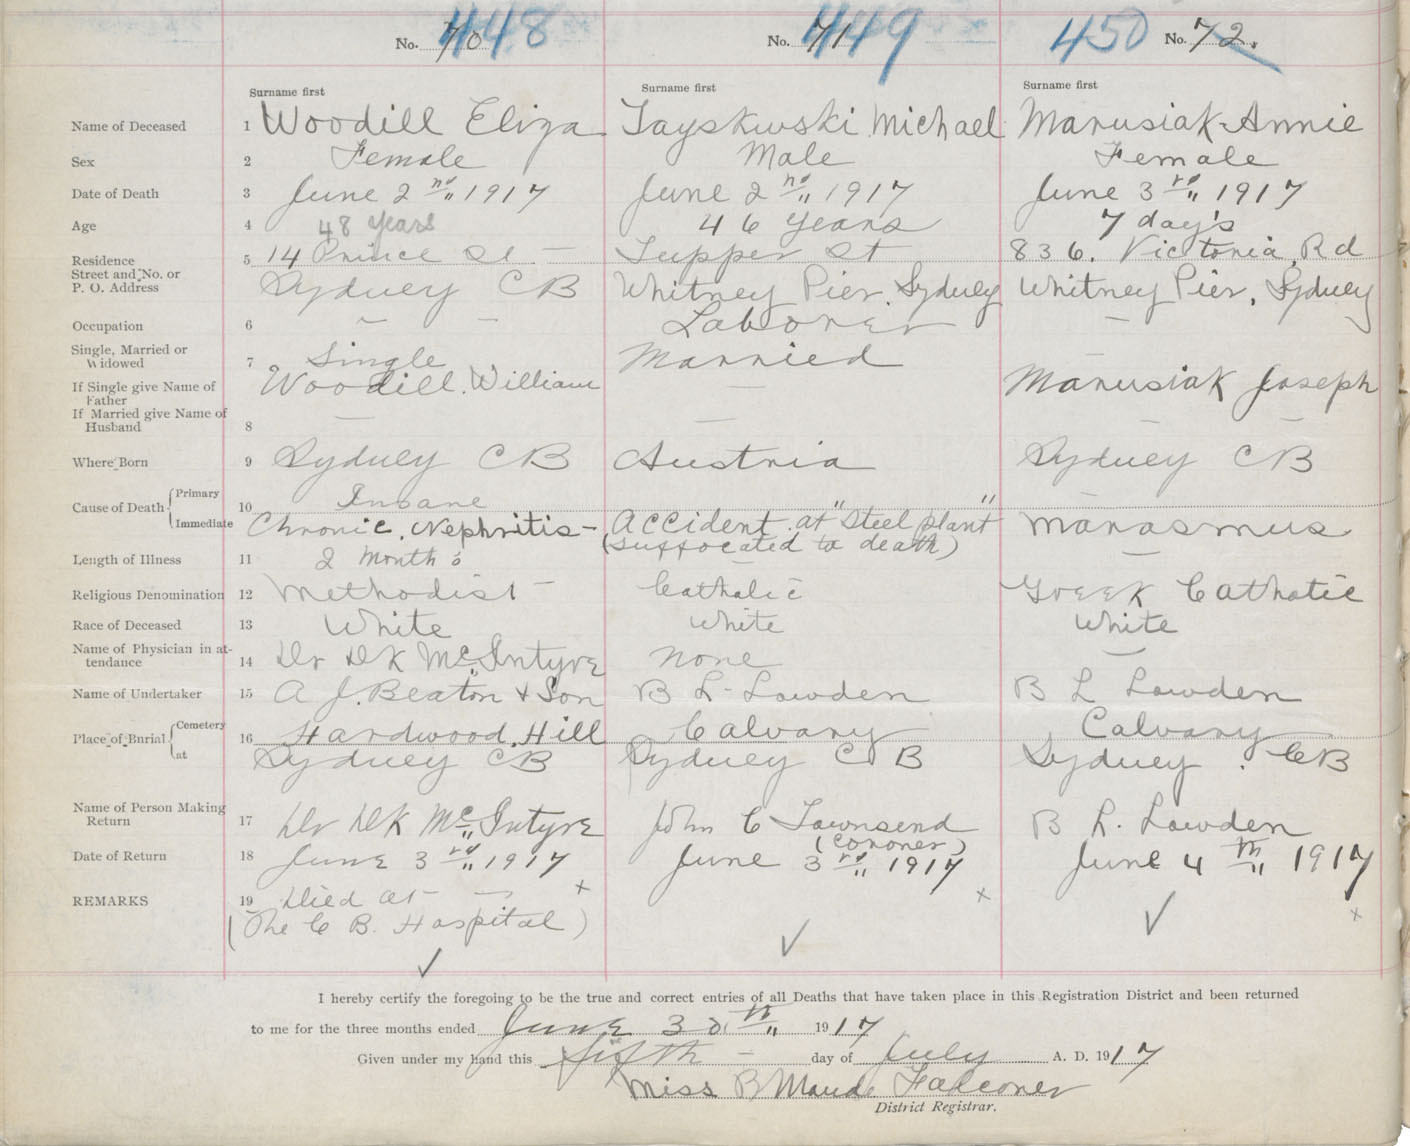 448 449 450
No. 70 No. 71 No. 72.
Surname first Surname first Surname first
Name of Deceased 1 Woodill Eliza Tayskwski Michael Marusiak Annie
Sex 2 Female Male Female
Date of Death 3 June 2nd 1917 June 2nd 1917 June 3rd 1917
Age 4 48 years 46 years 7 day's
Residence 5 14 Prince St — Tupper St 836. Victoria Rd
Street and No. or
P. O. Address Sydney CB Whitney Pier, Sydney Whitney Pier, Sydney
Occupation 6 ~ — Laborer —
Single, Married or
Widowed 7 Single Married —
If Single give Name of
Father Woodill. William — Marusiak Joseph
If Married give Name of
Husband 8 — — — —
Where Born 9 Sydney CB Austria Sydney CB
Cause of Death Primary 10 Insane
Immediate Chronic. Nephritis — Accident at "Steel plant" Marasmus
(suffocated to death)
Length of Illness 11 2 Month's — —
Religious Denomination 12 Methodist — Catholic Greek Catholic
Race of Deceased 13 White White White
Name of Physician in at-
tendance 14 Dr DK McIntyre none —
Name of Undertaker 15 A J. Beaton & Son B L. Lowden B L Lowden
Place of Burial Cemetery 16 Hardwood Hill Calvary Calvary
at Sydney CB Sydney CB Sydney. CB
Name of Person Making
Return 17 Dr DK McIntyre John C Townsend B L. Lowden
(Coroner)
Date of Return 18 June 3rd 1917 June 3rd 1917 June 4th 1917
REMARKS 19 Died at — x x x
(The C B. Hospital)
✓ ✓ ✓
I hereby certify the foregoing to be the true and correct entries of all Deaths that have taken place in this Registration District and been returned
to me for the three months ended June 30th 1917
Given under my hand this fifth — day of July A. D. 1917
Miss B Maude Falconer
District Registrar.